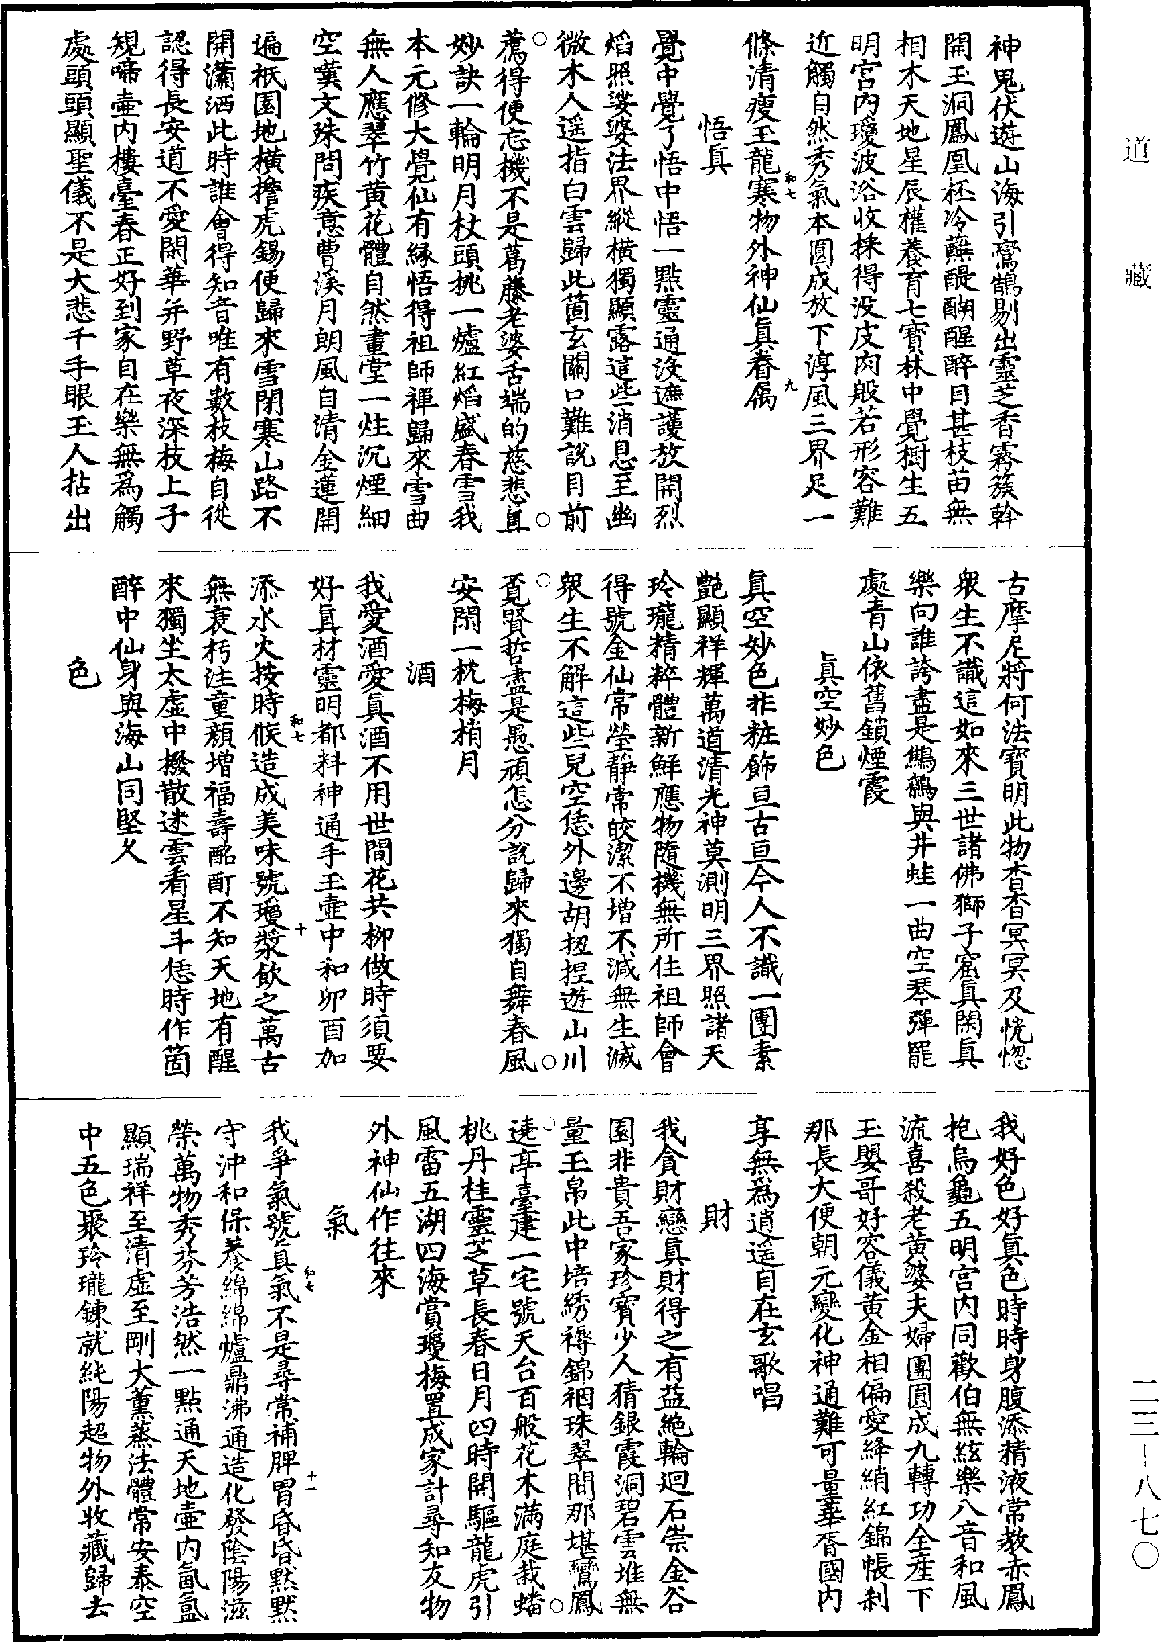 道藏
神鬼伏遊山海引鸞鵠剔出靈芝香霧簇幹
開玉洞鳳凰柸冷蘸醍醐醒醉目甚枝苗無
相木天地星辰權養育七寶林中覺樹生五
明宮内瓊波浴收採得没皮肉般若形容難
近觸自然秀氣本圓成放下淳風三界足一
條清瘦玉龍寒物外神仙真眷屬
和七
九
悟真
覺中覺了悟中悟一點靈通没遮護放開烈
焰照娑婆法界縱横獨顯露這些消息至幽
微木人遥指白雲歸此箇玄關口難説目前
薦得便忘機不是葛藤老婆舌端的慈悲直
妙訣一輪明月杖頭挑一爐紅焰盛春雪我
本元修大覺仙有緣悟得祖師禪歸來雪曲
無人應翠竹黄花體自然畫堂一炷沉煙細
空藂文殊問疾意曹溪月朗風自清金蓮開
遍祇園地横擔虎錫便歸來雪閉寒山路不
開瀟洒此時誰會得知音唯有數枝梅自從
認得長安道不愛閑華并野草夜深枝上子
規啼壷内樓臺春正好到家自在樂無爲觸
處頭頭顯聖儀不是大悲千手眼玉人拈出
古摩尼將何法寶明此物杳杳冥冥及恍惚
衆生不識這如來三世諸佛獅子窟真閑真
樂向誰誇盡是鷦鷯與井蛙一曲空琴彈罷
處青山依舊鎖煙霞
真空妙色
真空妙色非粧飾亘古亘今人不識一團素
艷顯祥輝萬道清光神莫測明三界照諸天
玲瓏精粹體新鮮應物隨機無所住祖師會
得號金仙常瑩靜常皎潔不增不減無生滅
衆生不解這些兒空恁外邊胡扭捏遊山川
覓賢哲盡是愚頑怎分説歸來獨自舞春風
安閑一枕梅梢月
酒
我愛酒愛真酒不用世間花共柳做時須要
好真材靈明都料神通手玉壷中和卯酉加
添水火按時候造成美味號瓊漿飲之萬古
和七
十
無衰朽注童顔增福壽酩酊不知天地有醒
來獨坐太虚中撥散迷雲看星斗恁時作箇
醉中仙身與海山同堅久
色
我好色好真色時時身腹添精液常教赤鳳
抱烏龜五明宮内同歡伯無絃樂八音和風
流喜殺老黄婆夫婦團圓成九轉功全産下
玉嬰哥好容儀黄金相偏愛絳綃紅錦帳剎
那長大便朝元變化神通難可量華胥國内
享無爲逍遥自在玄歌唱
財
我貪財戀真財得之有益絶輪迴石崇金谷
園非貴吾家珍寶少人猜銀霞洞碧雲堆無
量玉帛此中培綉褥錦裀珠翠間那堪鸞鳳
遶亭臺建一宅號天台百般花木滿庭栽蟠
桃丹桂靈芝草長春日月四時開驅龍虎引
風雷五湖四海賞瓊梅置成家計尋知友物
外神仙作往來
氣
我爭氣號真氣不是尋常補脾胃昏昏默默
和七
十一
守沖和保養綿綿爐鼎沸通造化發陰陽滋
榮萬物秀芬芳浩然一點通天地壷内氤氲
顯瑞祥至清虚至剛大薰蒸法體常安泰空
中五色聚玲瓏鍊就純陽超物外收藏歸去
二三–八七〇